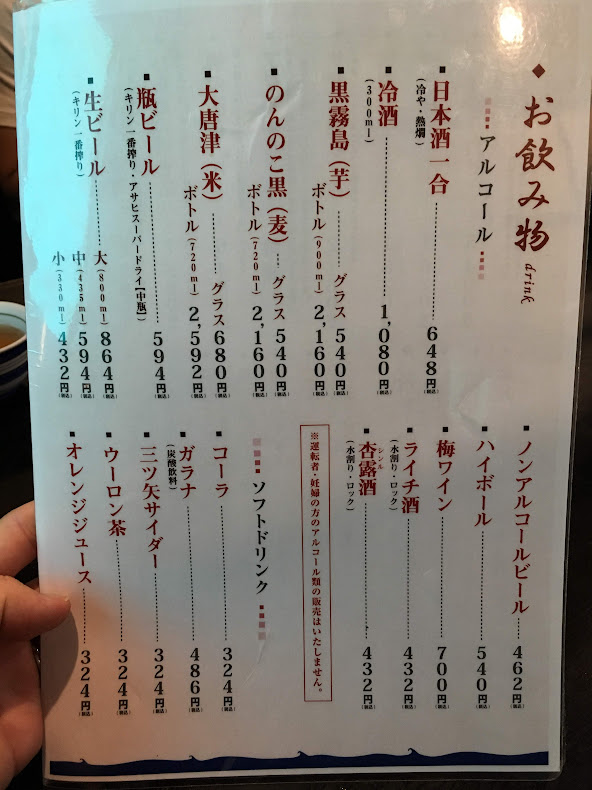 ◆お飲み物 drink
アルコール
■日本酒一合 648円(税込)
(冷や・熱燗)
■冷酒 1,080円(税込)
(300ml)
■黒霧島(芋) グラス 540円(税込)
ボトル(900ml) 2,160円(税込)
■のんのこ黒(麦) グラス 540円(税込)
ボトル(720ml) 2,160円(税込)
■大唐津(米) グラス 680円(税込)
ボトル(720ml) 2,592円(税込)
■瓶ビール 594円(税込)
(キリン一番搾り・アサヒスーパードライ【中瓶】)
■生ビール 大(800ml) 864円(税込)
(キリン一番搾り)
中(435ml) 594円(税込)
小(330ml) 432円(税込)
■ノンアルコールビール 462円(税込)
■ハイボール 540円(税込)
■梅ワイン 700円(税込)
■ライチ酒 432円(税込)
(水割り・ロック)
■杏露酒 432円(税込)
シンル
(水割り・ロック)
※運転者・妊婦の方のアルコール類の販売はいたしません。
ソフトドリンク
■コーラ 324円(税込)
■ガラナ 486円(税込)
(炭酸飲料)
■三ツ矢サイダー 324円(税込)
■ウーロン茶 324円(税込)
■オレンジジュース 324円(税込)